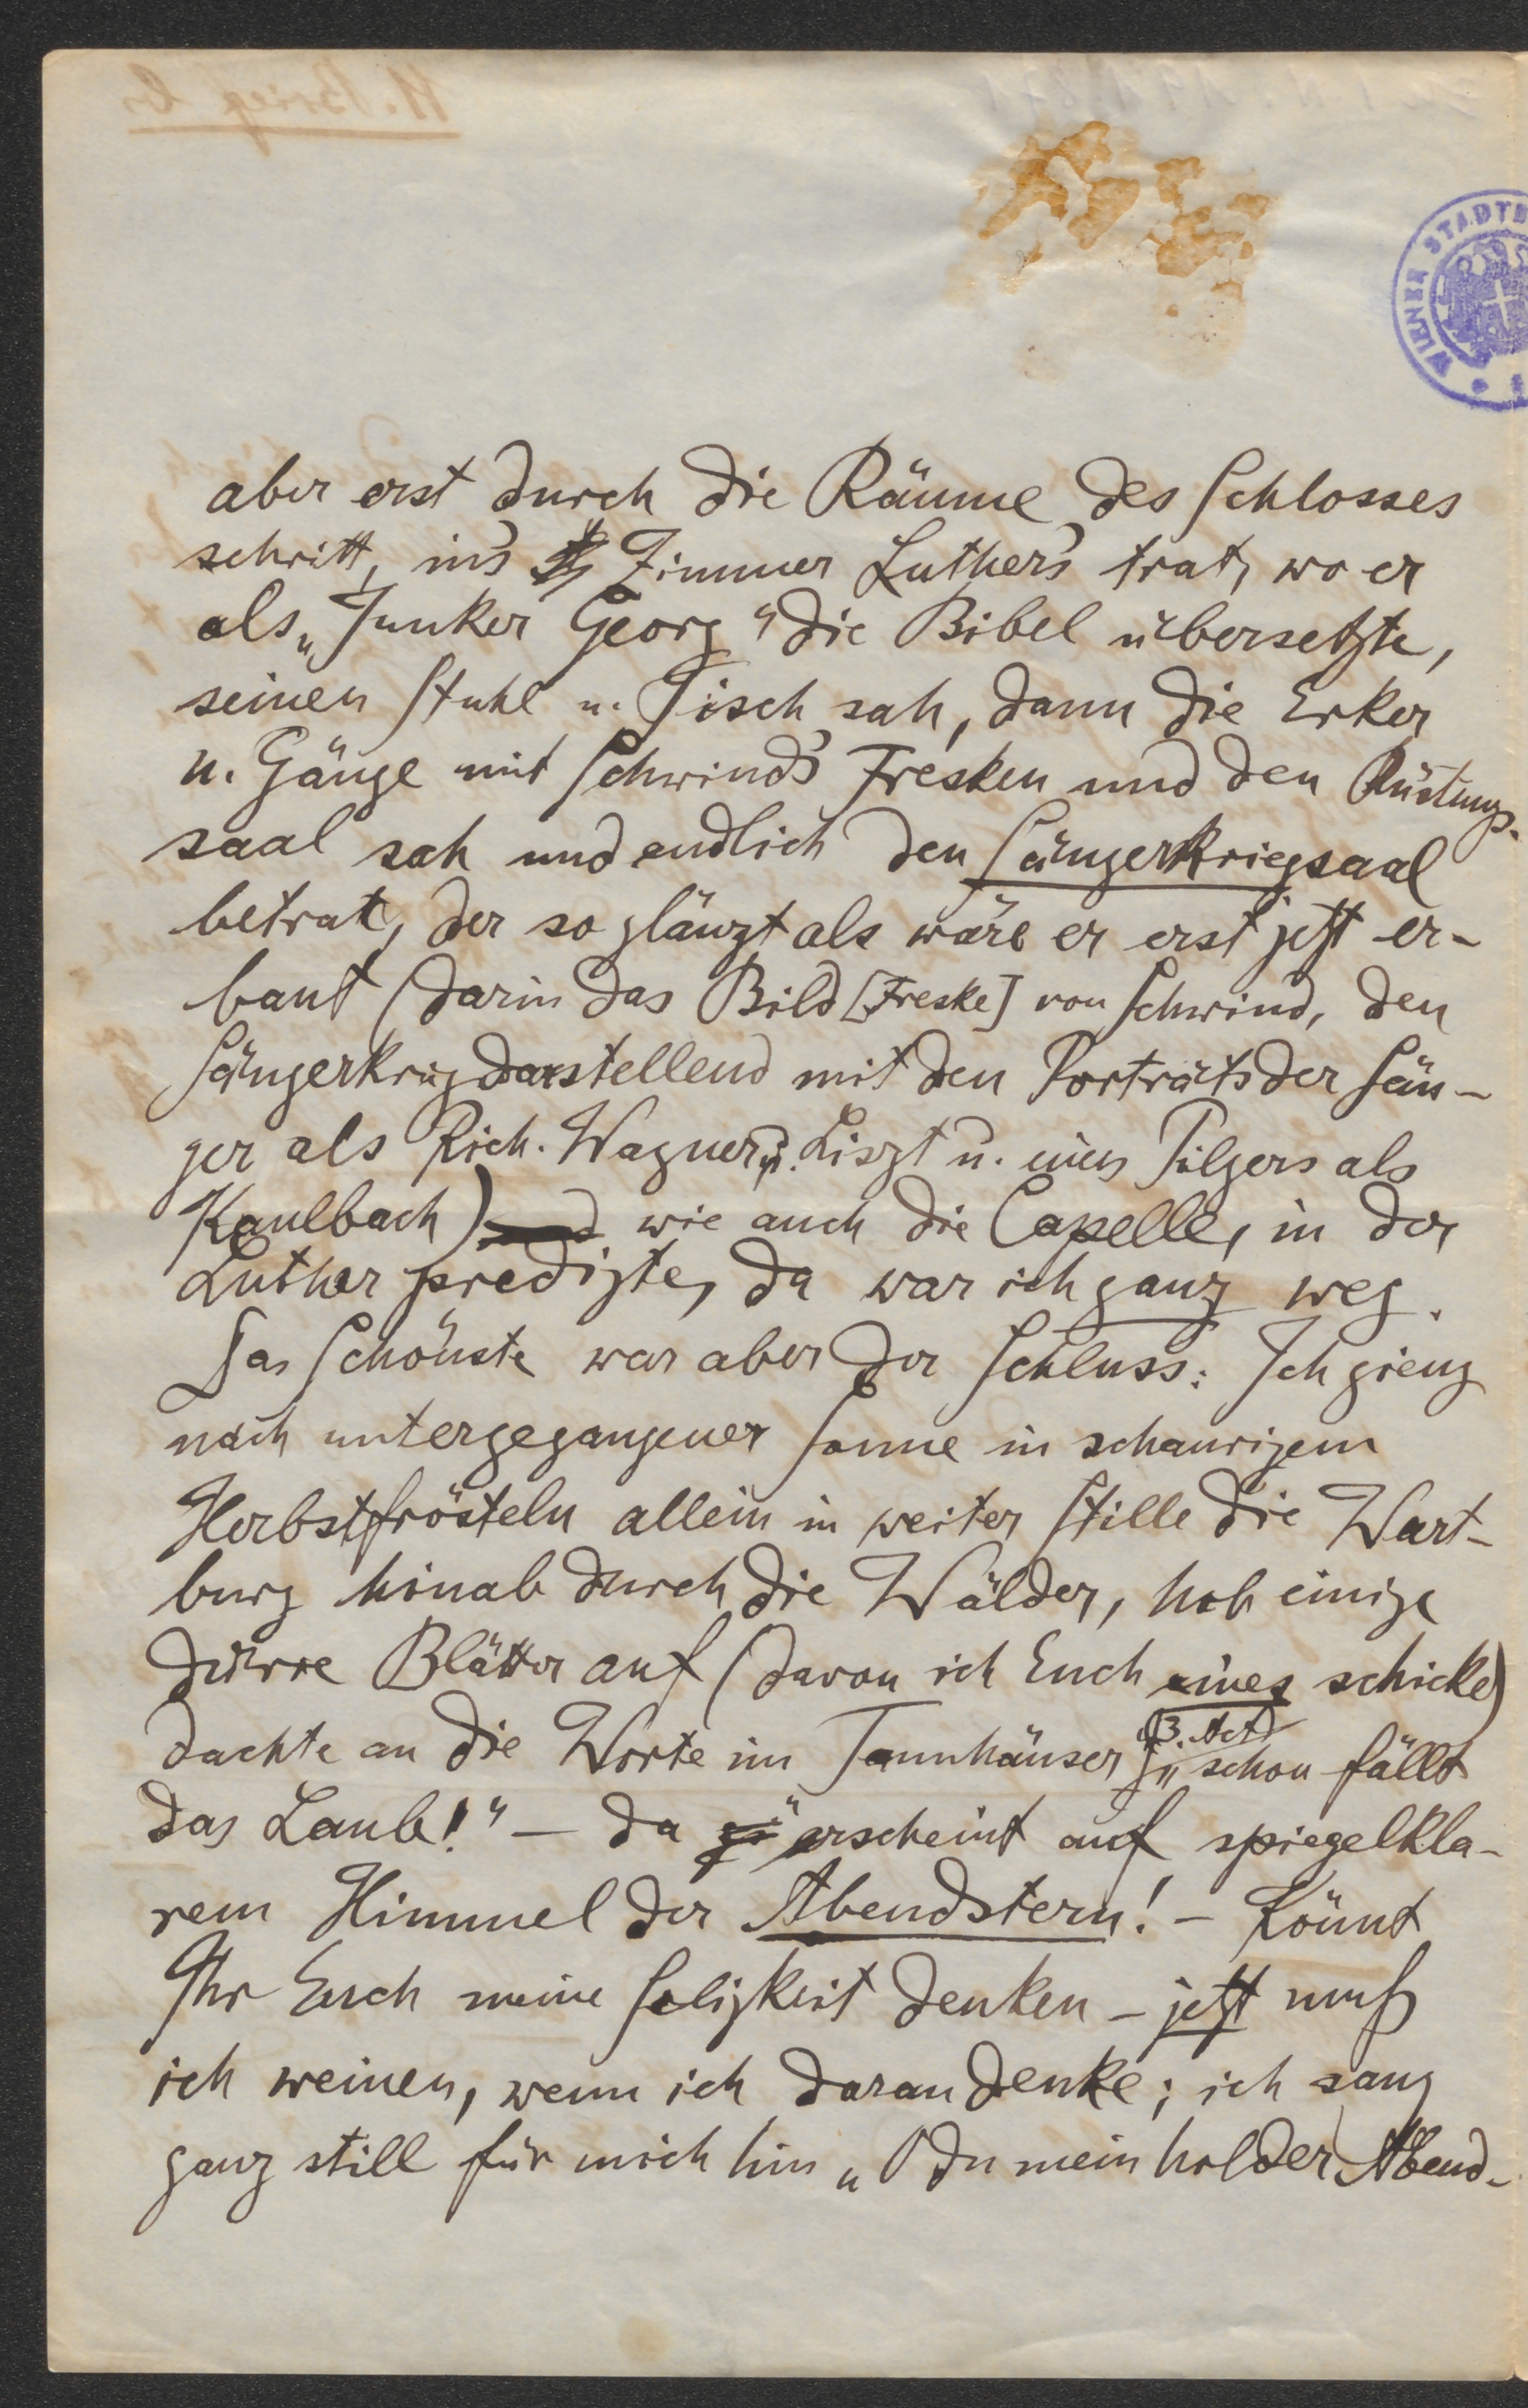 aber erst durch die Räume des Schlosses
schritt, in's Zimmer Luther's trat, wo er
als „Junker Georg" die Bibel übersetzte,
seinen Stuhl u. Tisch sah, dann die Erker
u. Gänge mit Schwind's Fresken und den Rüstungs-
saal sah und endlich den Sängerkriegsaal
betrat, der so glänzt als wäre er erst jetzt er-
baut (darin das Bild [Freske] von Schwind, den
Sängerkrieg darstellend mit den Porträts der Sän-
ger als Rich. Wagner u. Liszt u. eines Pilgers als
Kaulbach) wie auch die Capelle, in der
Luther predigte, da war ich ganz weg.
Das Schönste war aber der Schluss: Ich gieng
nach untergegangener Sonne in schaurigem
Herbstfrösteln allein in weiter Stille die Wart-
burg hinab durch die Wälder, hob einige
dürre Blätter auf (davon ich Euch eines schicke)
dachte an die Worte im Tannhäuser (3. Act) „schon fällt
das Laub!" – da erscheint auf spiegelkla-
rem Himmel der Abendstern! – Könnt
Ihr Euch meine Seligkeit denken – jetzt muß
ich weinen, wenn ich daran denke; ich sang
ganz still für mich hin „O du mein holder Abend-
WIENER STADTB